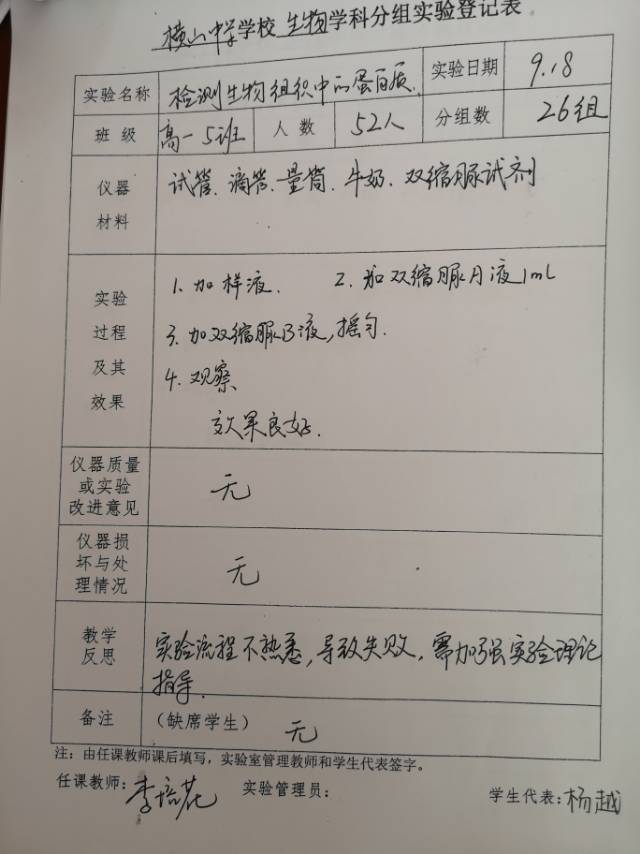 横山中学学校生物学科分组实验登记表
实验名称 检测生物组织中的蛋白质. 实验日期 9.18
班级 高一5班 人数 52人 分组数 26组
仪器材料 试管、滴管、量筒、牛奶、双缩脲试剂
实验过程及其效果
1. 加样液. 2. 加双缩脲A液1mL
3. 加双缩脲B液,摇匀.
4. 观察
效果良好.
仪器质量或实验改进意见 无
仪器损坏与处理情况 无
教学反思 实验流程不熟悉,导致失败,需加强实验理论
指导.
备注 (缺席学生) 无
注:由任课教师课后填写,实验室管理教师和学生代表签字。
任课教师:李培花 实验管理员: 学生代表:杨越